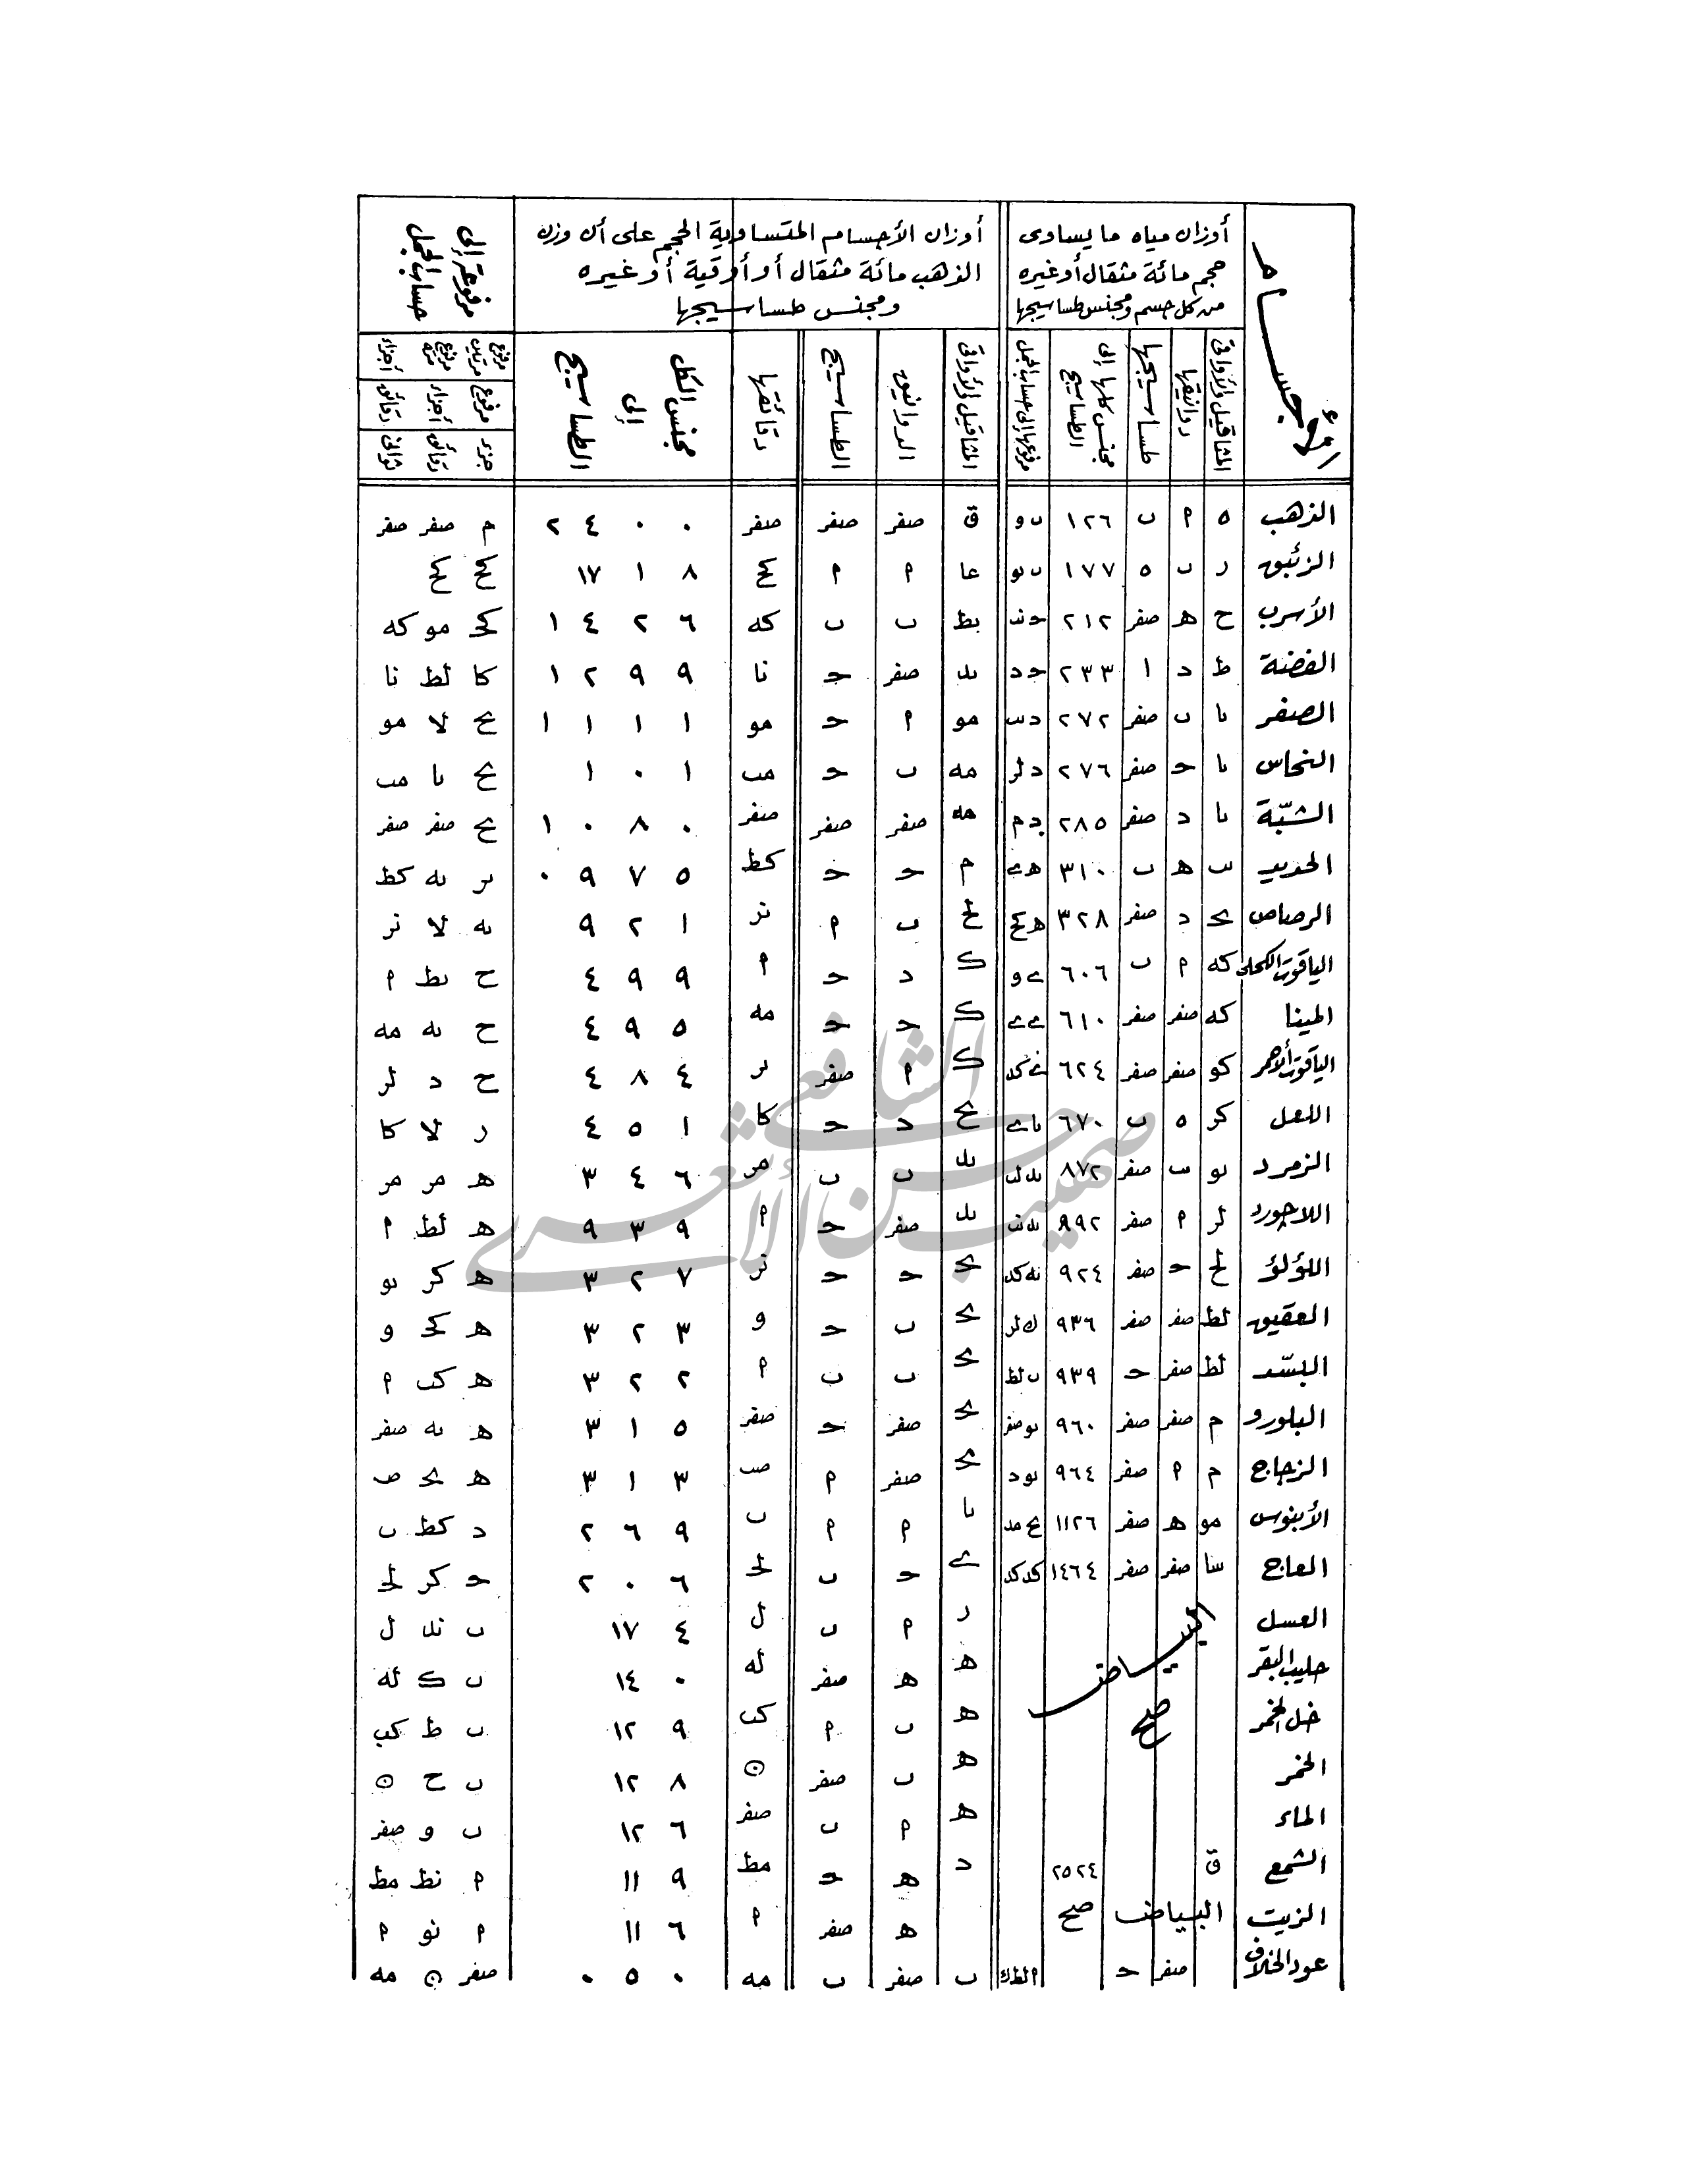 الأجسام
أوزان مياه ما يساوى
حجم مائة مثقال أو غيره
من كل جسم ومجنس طساسيجها
أوزان الأجسام المتساوية الحجم على أن وزن
الذهب مائة مثقال أو أوقية أو غيره
ومجنس طساسيجها
مرفوعة إلى
حساب الجمل
المثاقيل والأواقى
دوانيقها
طساسيجها
مجنس كلها إلى
الطساسيج
مرفوعها إلى حساب الجمل
المثاقيل والأواقى
الدوانيق
الطساسيج
دقائقها
مجنس الكل
إلى
الطساسيج
مرفوع مرتين مرفوع مرة أجزاء
مرفوع أجزاء دقائق
جزء دقائق ثوانى
الذهب ه ا ٮ ١٢٦ ٮ و ق صفر صفر صفر ٢ ٤ ٠ ٠ م صفر صفر
الزئبق ر ٮ ه ١٧٧ عا ا ا كح ١٧ ١ ٨ كح كح
الأسرب ح هـ صفر ٢١٢ ٮط ٮ ٮ كه ١ ٤ ٢ ٦ كح مو كه
الفضة ط د ا ٢٣٣ حـ د ٮد صفر حـ نا ١ ٢ ٩ ٩ كا لط نا
الصفر ٮا ٮ صفر ٢٧٢ مو ا حـ مو ١ ١ ١ ١ ٮح لا مو
النحاس ٮا حـ صفر ٢٧٦ د لر مه ٮ حـ مٮ ١ ٠ ١ ٮح ٮا مٮ
الشبّة ٮا د صفر ٢٨٥ د م مه صفر صفر صفر ١ ٠ ٨ ٠ ٮح صفر صفر
الحديد ٮٮ هـ ٮ ٣١٠ م حـ حـ كط ٠ ٩ ٧ ٥ ٮر ٮه كط
الرصاص ٮحـ د صفر ٣٢٨ هـ كح لح ٮ ا نر ٩ ٢ ١ ٮه لا نر
الياقوت الكحلى كه ا ٮ ٦٠٦ ے و ك د حـ ا ٤ ٩ ٩ ح ٮط ا
المينا كه صفر صفر ٦١٠ ے ے ك حـ حـ مه ٤ ٩ ٥ ح ٮه مه
الياقوت الأحمر كو صفر صفر ٦٢٤ ے كد ك ا صفر لر ٤ ٨ ٤ ح د لر
اللعل كر ه ٮ ٦٧٠ ٮا ے ٮح د حـ كا ٤ ٥ ١ ر لا كا
الزمرد لو ٮ صفر ٨٧٢ ٮد ٮ ٮ مر ٣ ٤ ٦ هـ مر مر
اللاجورد لر ا صفر ٨٩٢ ٮد صفر حـ ا ٩ ٣ ٩ هـ لط ا
اللؤلؤ لح حـ صفر ٩٢٤ ٮه كد ٮحـ حـ حـ نر ٣ ٢ ٧ هـ كر ٮو
العقيق لط صفر صفر ٩٣٦ ٮحـ ٮ حـ و ٣ ٢ ٣ هـ كحـ و
البسّد لط صفر حـ ٩٣٩ ٮحـ ٮ ٮ ا ٣ ٢ ٢ هـ كٮ ا
البلورو م صفر صفر ٩٦٠ ٮو صفر ٮحـ صفر حـ صفر ٣ ١ ٥ هـ ٮه صفر
الزجاج م ا صفر ٩٦٤ ٮو د ٮحـ صفر ا ٣ ١ ٣ هـ ٮحـ
الأبنوس مو هـ صفر ١١٢٦ ٮا ا ا ٮ ٢ ٦ ٩ د كط ٮ
العاج سا صفر صفر ١٤٦٤ كد كد ے حـ ٮ لحـ ٢ ٠ ٦ حـ كر لحـ
العسل ر ا ٮ ل ١٧ ٤ ٮ ند ل
حليب البقر هـ هـ صفر له ١٤ ٠ ٮ ك له
البياض
خل الخمر صح هـ ٮ ا كٮ ١٢ ٩ ٮ ط كٮ
الخمر هـ ٮ صفر ن ١٢ ٨ ٮ ح ن
الماء هـ ا ٮ صفر ١٢ ٦ ٮ و صفر
الشمع ق ٢٥٢٤ د هـ حـ مط ١١ ٩ ا نط مط
الزيت البياض صح هـ صفر ا ١١ ٦ ا نو ا
عود الخلاف صفر حـ ٮ صفر ٮ مه ٠ ٥ ٠ صفر ن مه
صهيب حسن الشافعي الأشعري